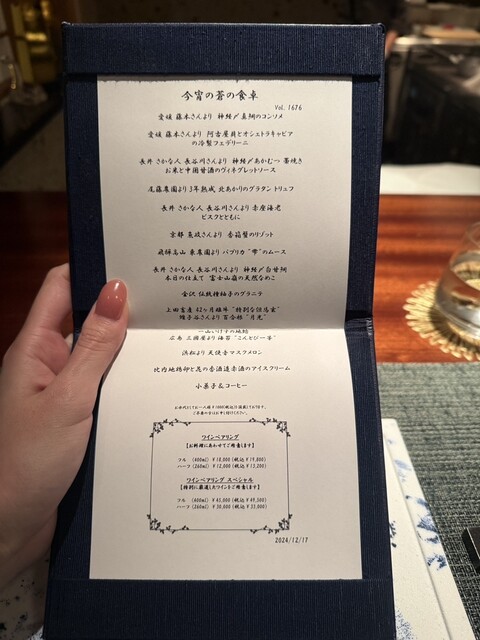 今宵の蒼の食卓
Vol. 1676
愛媛 藤本さんより 神経〆真鯛のコンソメ
愛媛 藤本さんより 阿古屋貝とオシェトラキャビア
の冷製フェデリーニ
長井 さかな人 長谷川さんより 神経〆あかむつ 藁焼き
お米と中国甘酒のヴィネグレットソース
尾藤農園より 3年熟成 北あかりのグラタン トリュフ
長井 さかな人 長谷川さんより 赤座海老
ビスクとともに
京都 より 香箱蟹のリゾット
飛騨高山 東農園より パプリカ “雫”のムース
長井 さかな人 長谷川さんより 神経〆白甘鯛
本日の仕立て 富士山嶺の天然なめこ
金沢 伝統種柚子のグラニテ
上田畜産 42ヶ月雌牛 “特別な但馬玄”
さんより 百合根 “月光”
浜松より 天使音マスクメロン
比内地鶏卵と 酒造赤酒のアイスクリーム
小菓子&コーヒー
ワインペアリング
【お料理にあわせてご用意します】
フル (400ml) ¥18,000 (税込 ¥19,800)
ハーフ (260ml) ¥12,000 (税込 ¥13,200)
ワインペアリング スペシャル
【特別に厳選したワインをご用意します】
フル (400ml) ¥45,000 (税込 ¥49,500)
ハーフ (260ml) ¥30,000 (税込 ¥33,000)
2024/12/17